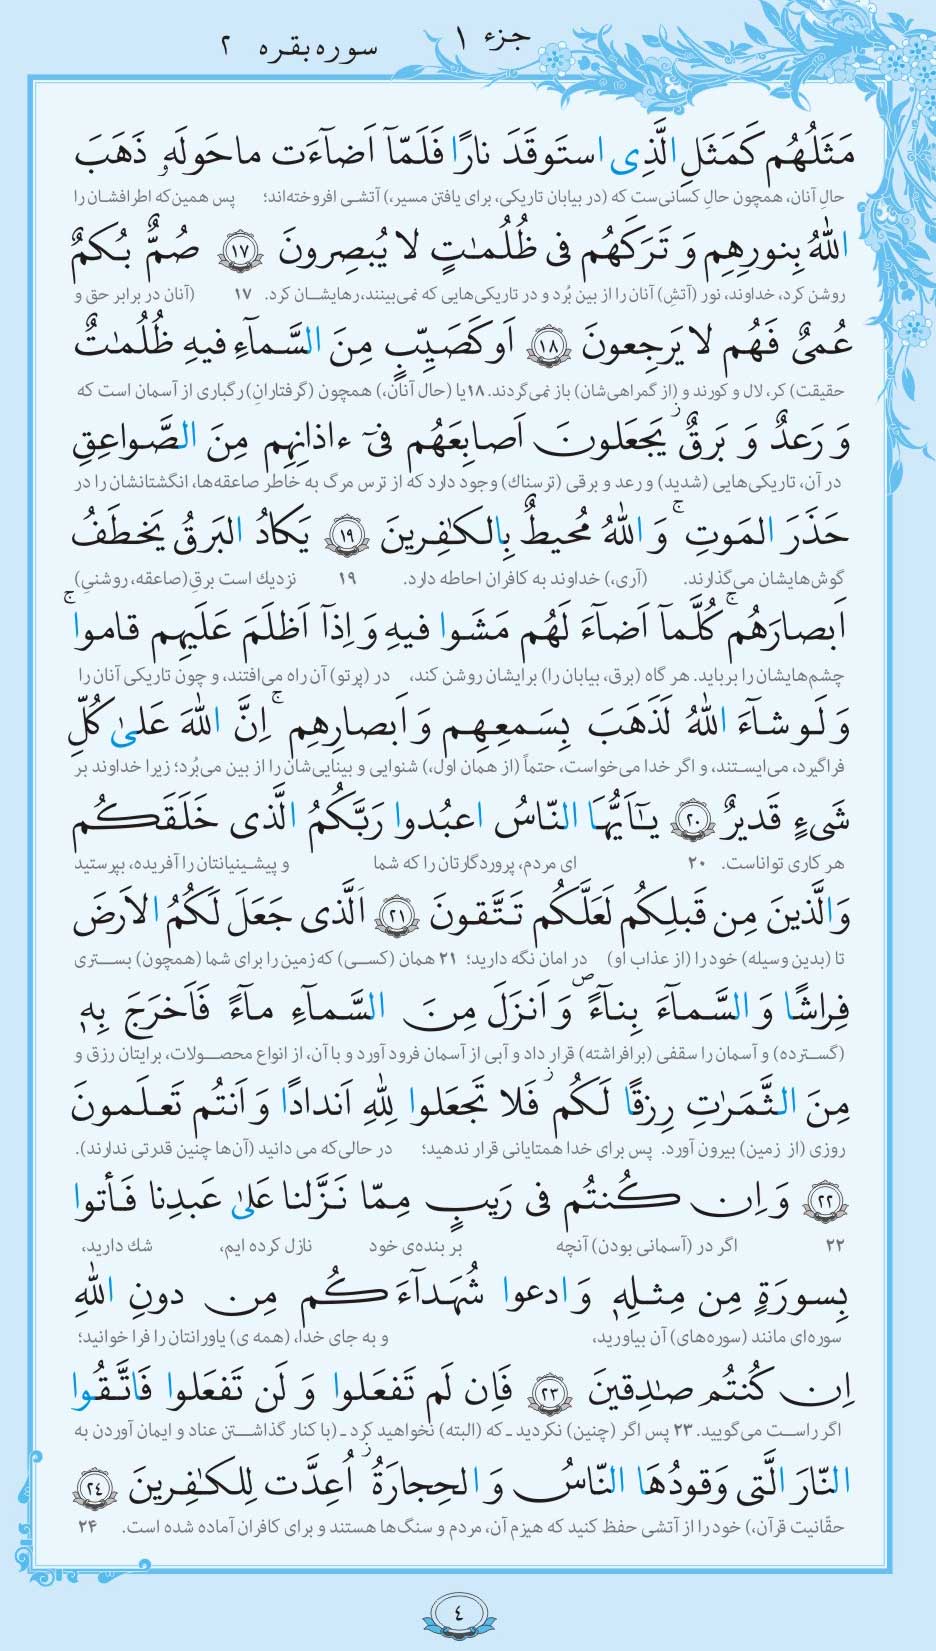 جزء ۱
سوره بقره ۲
مَثَلُهُم كَمَثَلِ الَّذِی استَوقَدَ نارًا فَلَمّآ اَضآءَت ماحَولَهٗ ذَهَبَ
حالِ آنان، همچون حالِ کسانی‌ست که (در بیابان تاریکی، برای یافتن مسیر،) آتشی افروخته‌اند؛ پس همین‌که اطرافشان را
اللهُ بِنورِهِم وَ تَرَكَهُم فی ظُلُمـٰتٍ لا یُبصِرونَ ﴿۱۷﴾ صُمٌّ بُكمٌ
روشن کرد، خداوند، نور (آتشِ) آنان را از بین بُرد و در تاریکی‌هایی که نمی‌بینند، رهایشان کرد. ۱۷ (آنان در برابر حق و
عُمیٌ فَهُم لا یَرجِعونَ ﴿۱۸﴾ اَو كَصَیِّبٍ مِنَ السَّمآءِ فیهِ ظُلُمـٰتٌ
حقیقت) کر، لال و کورند و (از گمراهی‌شان) باز نمی‌گردند. ۱۸ یا (حال آنان،) همچون (گرفتارانِ) رگباری از آسمان است که
وَ رَعدٌ وَ بَرقٌ ۖ یَجعَلونَ اَصابِعَهُم فیٓ ءاذانِهِم مِنَ الصَّواعِقِ
در آن، تاریکی‌هایی (شدید) و رعد و برقی (ترسناك) وجود دارد که از ترس مرگ به خاطر صاعقه‌ها، انگشتانشان را در
حَذَرَ المَوتِ ۚ وَ اللهُ مُحیطٌ بِالكـٰفِرینَ ﴿۱۹﴾ یَكادُ البَرقُ یَخطَفُ
گوش‌هایشان می‌گذارند. (آری،) خداوند به کافران احاطه دارد. ۱۹ نزدیك است برقِ (صاعقه، روشنیِ)
اَبصارَهُم ۚ كُلَّمآ اَضآءَ لَهُم مَشَوا فیهِ وَ اِذآ اَظلَمَ عَلَیهِم قاموا ۚ
چشم‌هایشان را برباید. هر گاه (برق، بیابان را) برایشان روشن کند، در (پرتوِ) آن راه می‌افتند، و چون تاریکی آنان را
وَ لَو شآءَ اللهُ لَذَهَبَ بِسَمعِهِم وَ اَبصارِهِم ۚ اِنَّ اللهَ عَلیٰ كُلِّ
فراگیرد، می‌ایستند، و اگر خدا می‌خواست، حتماً (از همان اول،) شنوایی و بینایی‌شان را از بین می‌بُرد؛ زیرا خداوند بر
شَیءٍ قَدیرٌ ﴿۲۰﴾ یـٰٓاَیُّهَا النّاسُ اعبُدوا رَبَّكُمُ الَّذی خَلَقَكُم
هر کاری تواناست. ۲۰ ای مردم، پروردگارتان را که شما و پیشینیانتان را آفریده، بپرستید
وَالَّذینَ مِن قَبلِكُم لَعَلَّكُم تَتَّقونَ ﴿۲۱﴾ اَلَّذی جَعَلَ لَكُمُ الاَرضَ
تا (بدین وسیله) خود را (از عذاب او) در امان نگه دارید؛ ۲۱ همان (کسی) که زمین را برای شما (همچون) بستری
فِراشًا وَ السَّمآءَ بِنآءً ۖ وَ اَنزَلَ مِنَ السَّمآءِ مآءً فَاَخرَجَ بِهٖ
(گسترده) و آسمان را سقفی (برافراشته) قرار داد و آبی از آسمان فرود آورد و با آن، از انواع محصولات، برایتان رزق و
مِنَ الثَّمَرٰتِ رِزقًا لَكُم ۖ فَلا تَجعَلوا لِلّٰهِ اَندادًا وَ اَنتُم تَعلَمونَ
روزی (از زمین) بیرون آورد. پس برای خدا همتایانی قرار ندهید؛ در حالی‌که می دانید (آن‌ها چنین قدرتی ندارند).
﴿۲۲﴾ وَ اِن كُنتُم فی رَیبٍ مِمّا نَزَّلنا عَلیٰ عَبدِنا فَأتوا
۲۲ اگر در (آسمانی بودن) آنچه بر بنده‌ی خود نازل کرده ایم، شك دارید،
بِسورَةٍ مِن مِثلِهٖ وَ ادعوا شُهَدآءَكُم مِن دونِ اللهِ
سوره‌ای مانند (سوره‌های) آن بیاورید، و به جای خدا، (همه ی) یاورانتان را فرا خوانید؛
اِن كُنتُم صـٰدِقینَ ﴿۲۳﴾ فَاِن لَم تَفعَلوا وَ لَن تَفعَلوا فَاتَّقُوا
اگر راست می‌گویید. ۲۳ پس اگر (چنین) نکردید ـ که (البته) نخواهید کرد ـ (با کنار گذاشتن عناد و ایمان آوردن به
النّارَ الَّتی وَقودُهَا النّاسُ وَ الحِجارَةُ ۖ اُعِدَّت لِلكـٰفِرینَ ﴿۲۴﴾
حقّانیت قرآن،) خود را از آتشی حفظ کنید که هیزم آن، مردم و سنگ‌ها هستند و برای کافران آماده شده است. ۲۴
٤